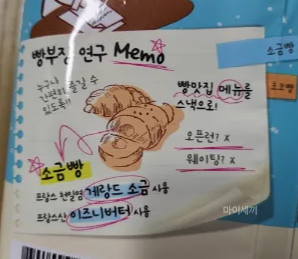 빵부장 연구 Memo
누구나
간편하게 즐길 수
있도록!!
빵맛집 메뉴를
스낵으로!
오픈런? X
웨이팅? X
소금빵
프랑스 천일염 게랑드 소금 사용
프랑스산 이즈니버터 사용
소금빵
초코빵
마이세끼